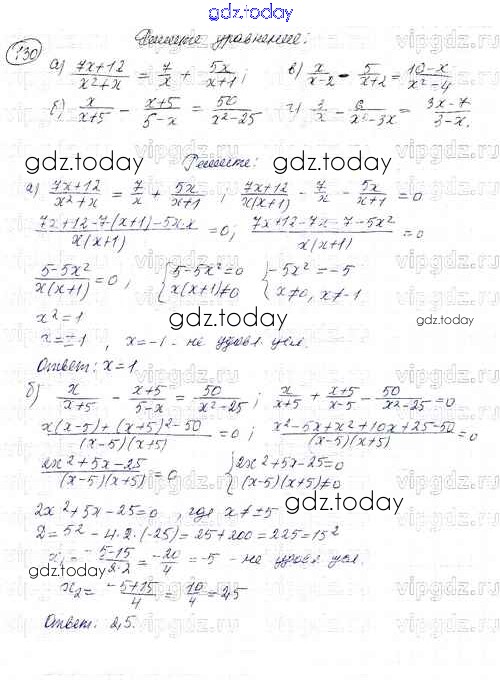 gdz.today
130 Решите уравнений:
а) (7x+12)/(x²+x) = 7/x + 5x/(x+1); в) x/(x-2) - 5/(x+2) = (10-x)/(x²-4)
б) x/(x+5) - (x+5)/(5-x) = 50/(x²-25) г) 7/x - 6/(x²-3x) = (3x-7)/(3-x).
gdz.today
gdz.today
Решение:
а) (7x+12)/(x²+x) = 7/x + 5x/(x+1); (7x+12)/(x(x+1)) - 7/x - 5x/(x+1) = 0
(7x+12-7(x+1)-5x·x)/(x(x+1)) = 0; (7x+12-7x-7-5x²)/(x(x+1)) = 0
(5-5x²)/(x(x+1)) = 0; {5-5x²=0 {-5x²=-5
{x(x+1)≠0 {x≠0, x≠-1
x²=1
gdz.today
gdz.today
x=±1, x=-1 - не удовл усл.
Ответ: x=1
б) x/(x+5) - (x+5)/(5-x) = 50/(x²-25); x/(x+5) + (x+5)/(x-5) - 50/(x²-25) = 0
(x(x-5)+(x+5)²-50)/((x-5)(x+5)) = 0; (x²-5x+x²+10x+25-50)/((x-5)(x+5)) = 0
(2x²+5x-25)/((x-5)(x+5)) = 0 {2x²+5x-25=0
{(x-5)(x+5)≠0
gdz.today
2x²+5x-25=0, где x≠±5
D=5²-4·2·(-25)=25+200=225=15²
x₁=(-5-15)/(2·2)=-20/4=-5 - не удовл усл.
gdz.today
x₂=(-5+15)/4=10/4=2,5
Ответ: 2,5.